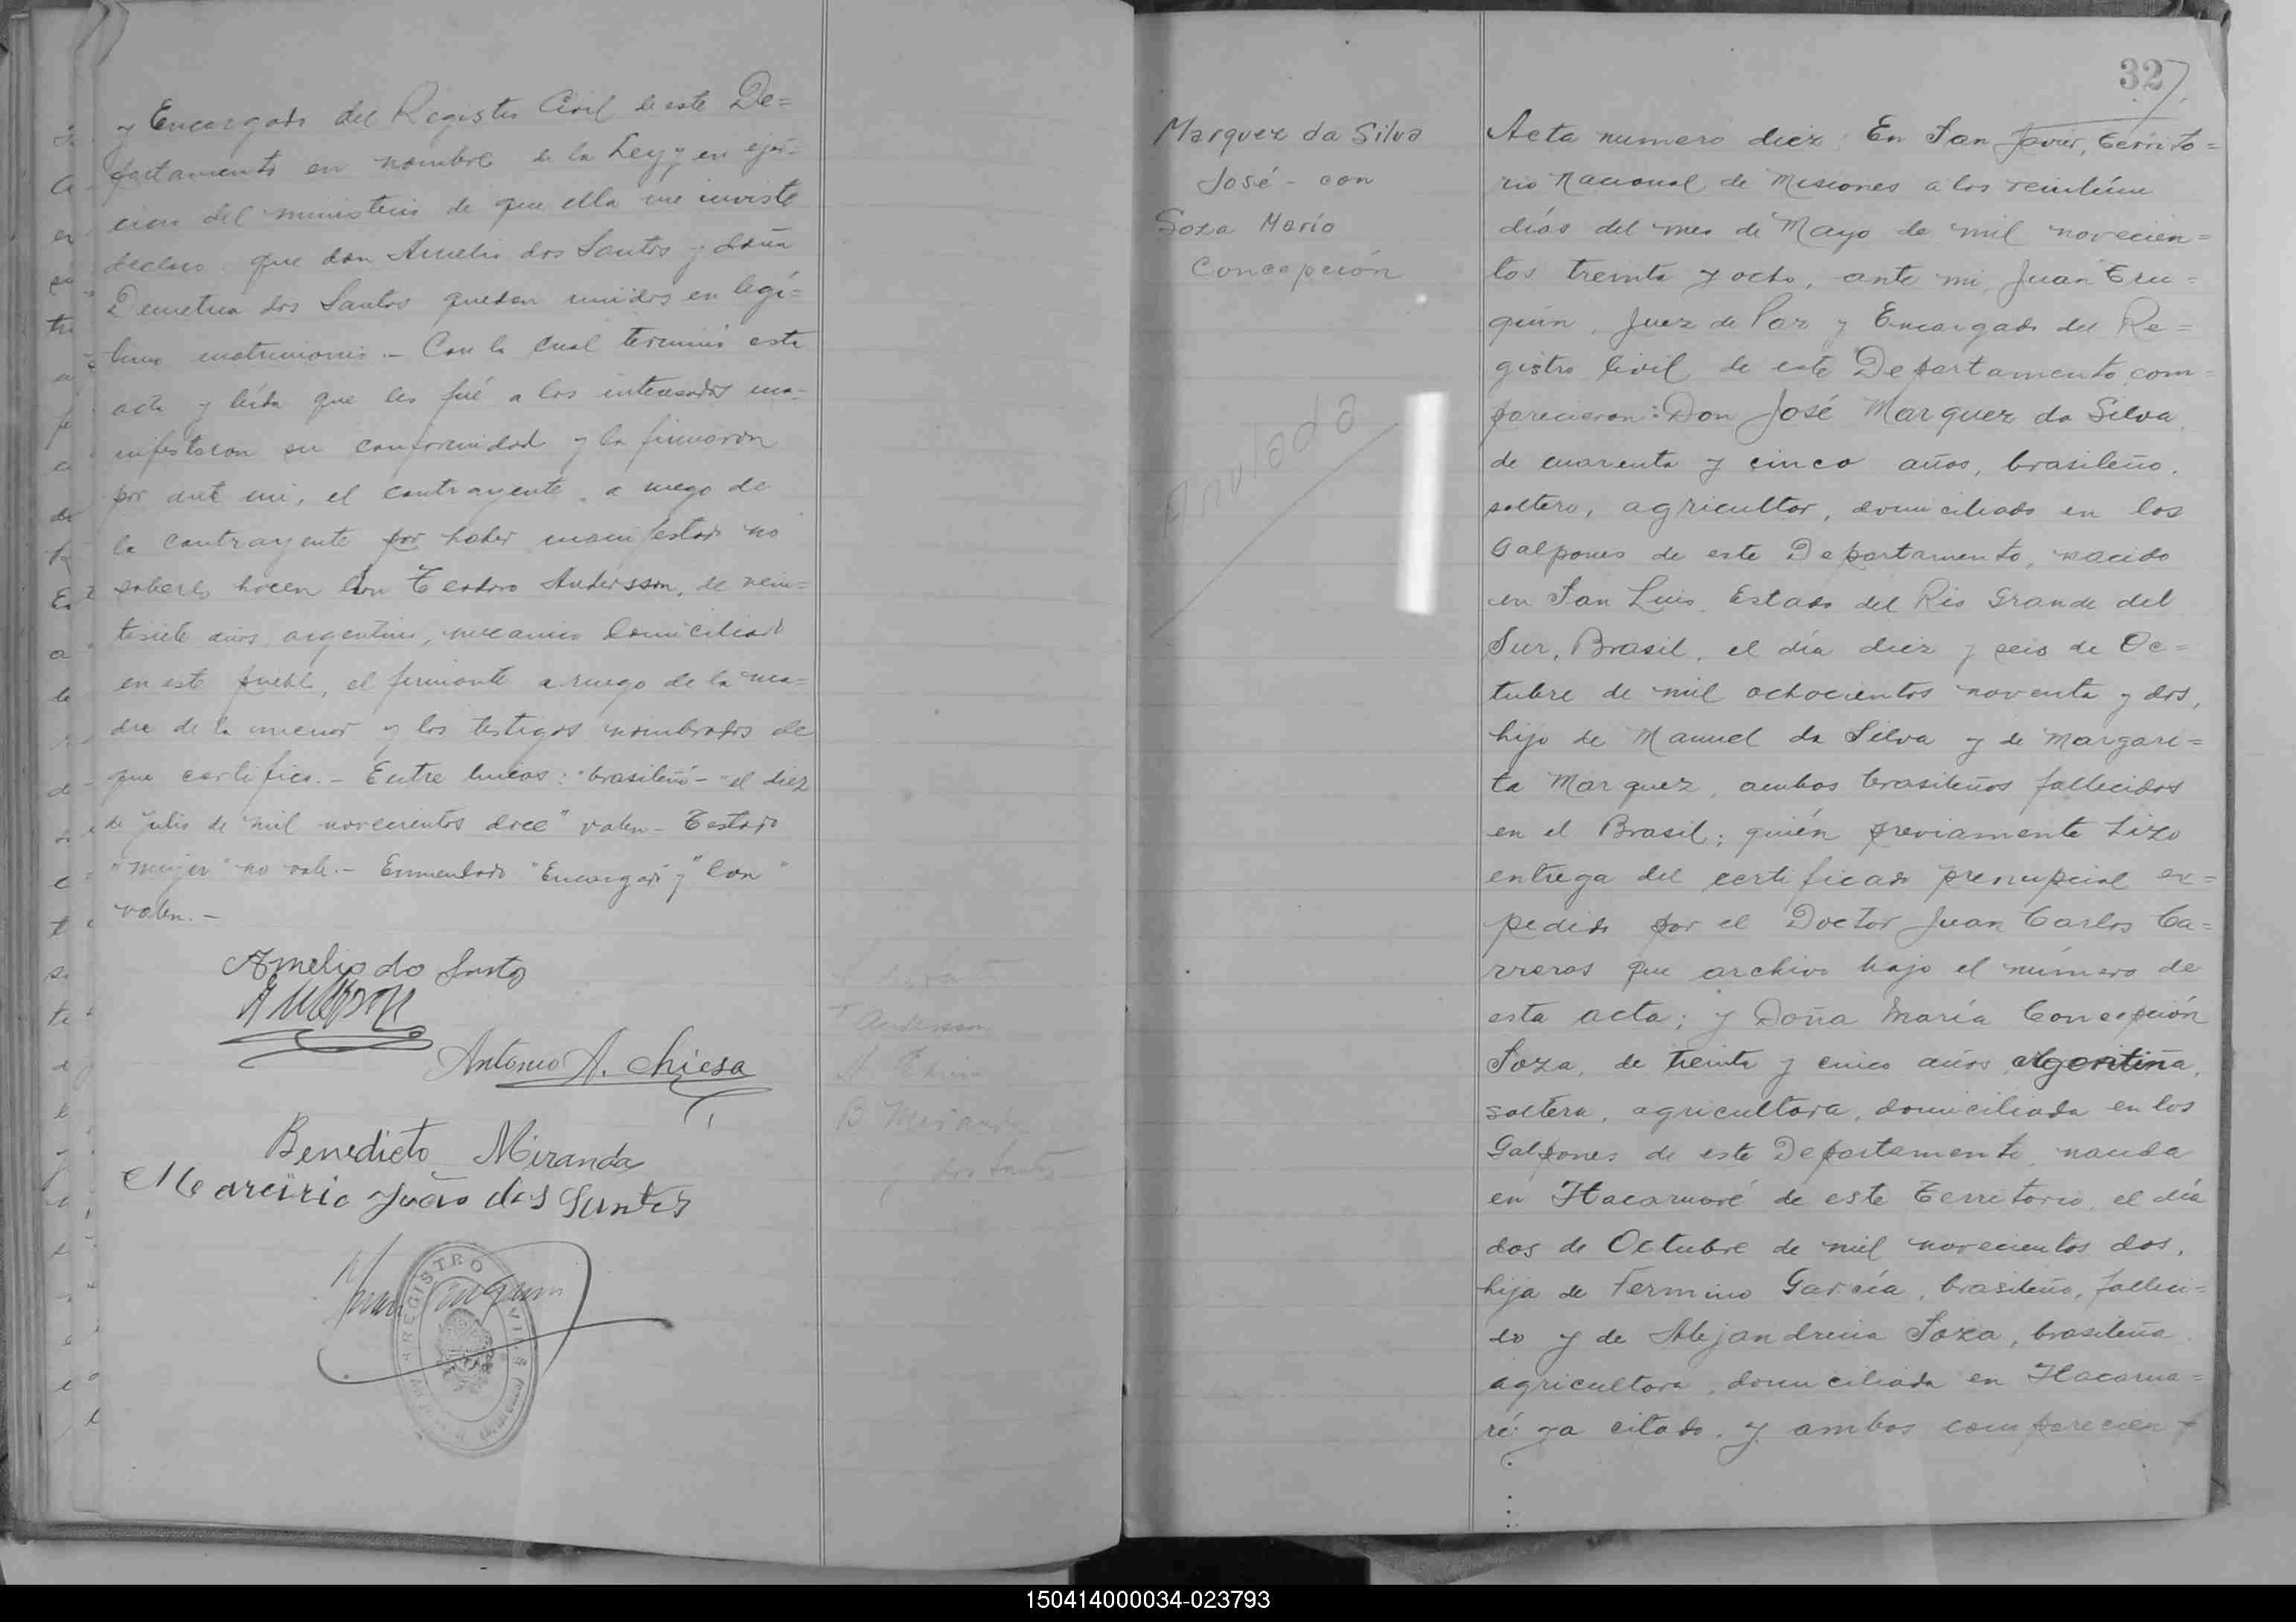 y Encargado del Registro Civil de este De=
partamento en nombre de la Ley y en ejer=
cicio del ministerio de que ella me inviste
declaro que don Amelio dos Santos y doña
Demetria dos Santos quedan unidos en legí=
timo matrimonio.- Con lo cual terminó esta
acta y leída que les fué a los interesados ma=
nifestaron su conformidad y la firmaron
por ante mí, el contrayente, a ruego de
la contrayente por haber manifestado no
saberlo hacen don Teodoro Andersson, de vein=
tisiete años, argentino, mecanico domiciliado
en este pueblo, el firmante a ruego de la ma=
dre de la menor y los testigos nombrados de
que certifico.- Entre lineas: "brasileño"- "el diez
de Julio de mil novecientos doce" valen- Testado
"mujer" no vale.- Enmendado "Encargado" y "Con"
valen.-
Amelio do Santos
Antonio A. Chiesa
Benedicto Miranda
João dos Santos
Juan Truquin
REGISTRO CIVIL
T Anderson
A Chiesa
B Miranda
dos Santos
327
Marquez da Silva
José - con
Soza María
Concepción
Anulada
Acta numero diez: En San Javier, Territo=
rio Nacional de Misiones a los veintiún
días del mes de Mayo de mil novecien=
tos treinta y ocho, ante mi, Juan Tru=
quin, Juez de Paz y Encargado del Re=
gistro Civil de este Departamento com=
parecieron: Don José Marquez da Silva
de cuarenta y cinco años, brasileño,
soltero, agricultor, domiciliado en los
Galpones de este Departamento, nacido
en San Luis, Estado del Rio Grande del
Sur, Brasil, el día diez y seis de Oc=
tubre de mil ochocientos noventa y dos,
hijo de Manuel da Silva y de Margari=
ta Marquez, ambos brasileños fallecidos
en el Brasil; quién previamente hizo
entrega del certificado prenupcial ex=
pedido por el Doctor Juan Carlos Ca=
rreras que archivo bajo el número de
esta acta; y Doña María Concepción
Soza, de treinta y cinco años, argentina,
soltera, agricultora, domiciliada en los
Galpones de este Departamento, nacida
en Itacaruaré de este Territorio, el día
dos de Octubre de mil novecientos dos,
hija de Fermino García, brasileño, falleci=
do y de Alejandrina Soza, brasileña
agricultora, domiciliada en Itacarua=
ré ya citado, y ambos comparecien=
150414000034-023793